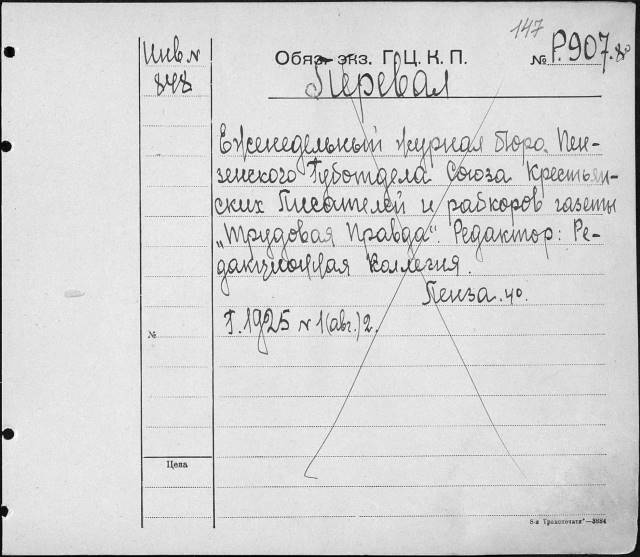 147
Инв. №
848
Обяз. экз. Г. Ц. К. П.
№ Р.907.
Перевал
Еженедельный журнал бюро Пен-
зенского Губотдела Союза Крестьян-
ских Писателей и рабкоров газеты
„Трудовая Правда“. Редактор: Ре-
дакционная Коллегия.
Пенза. 4о.
Г. 1925 № 1(авг.) 2.
№
Цена
8-я Транспечати“—3884